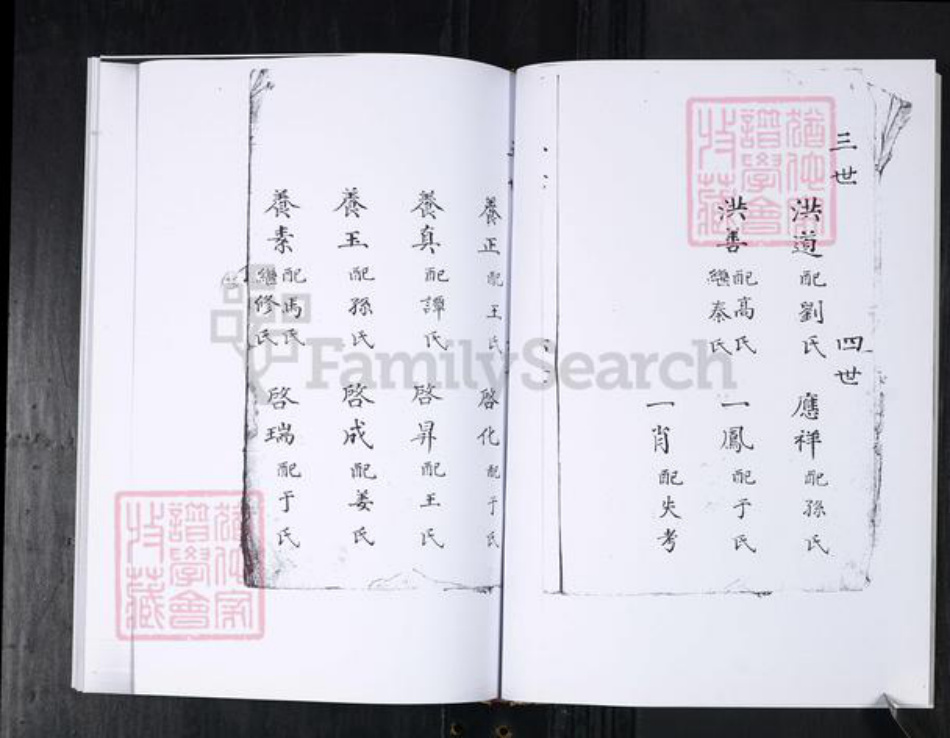 三世
洪道 配劉氏
洪善 配高氏 繼秦氏
四世
應祥 配孫氏
一鳳 配于氏
一肖 配失考
養正 配王氏
養真 配譚氏
養玉 配孫氏
養素 配馮氏 繼修氏
啓化 配于氏
啓昇 配王氏
啓成 配姜氏
啓瑞 配于氏
FamilySearch